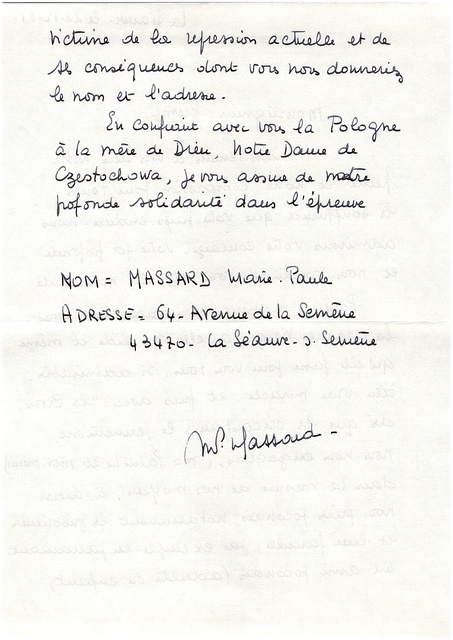 victime de la repression actuelle et de
ses conséquences dont vous nous donneriez
le nom et l'adresse.
En confiant avec vous la Pologne
à la mère de Dieu, Notre Dame de
Czestochowa, je vous assure de notre
profonde solidarité dans l'épreuve
NOM = MASSARD Marie-Paule
ADRESSE = 64 - Avenue de la Semène
43470 - La Séauve-s. Semène
MP Massard -